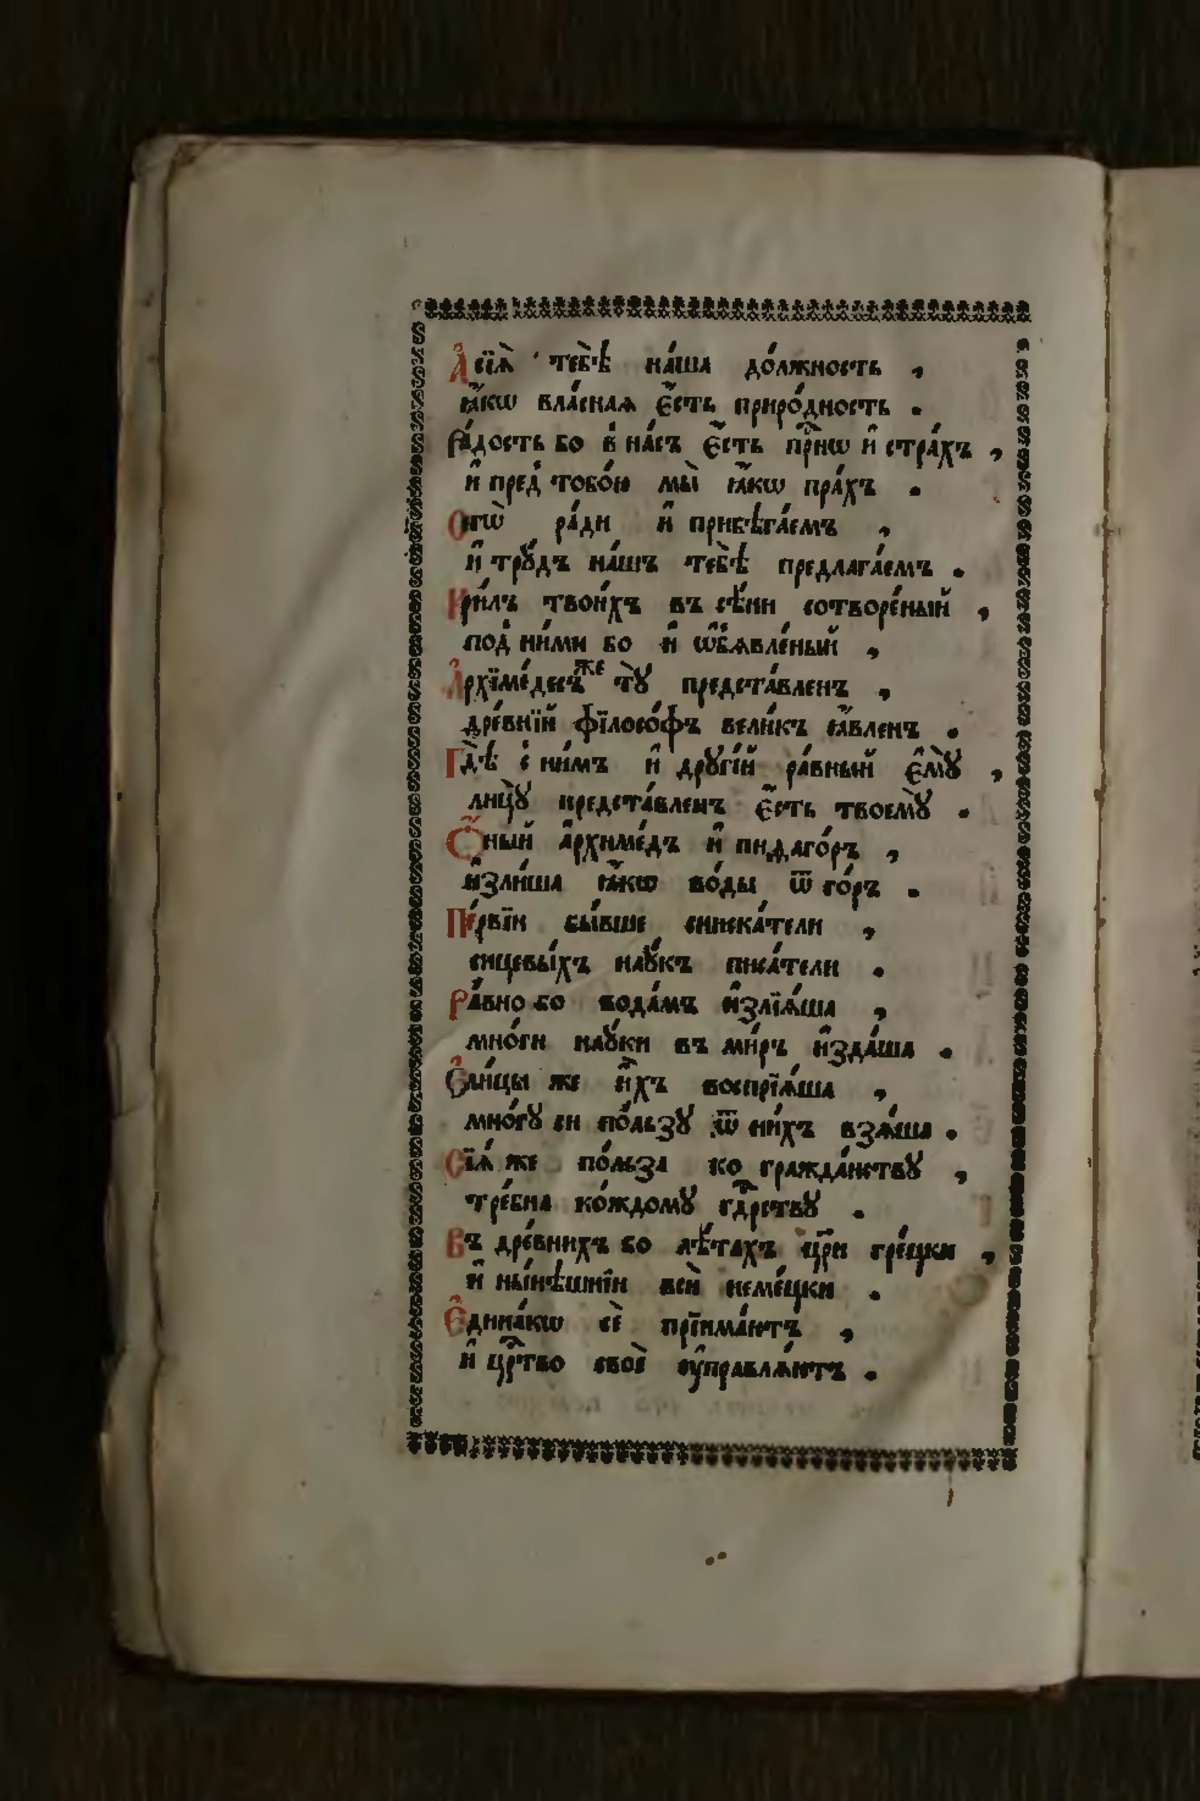 А҆ сїѧ̀ тебѣ̀ на́ша до́лжность ,
ꙗ҆́кѡ вла́сная є҆́сть приро́дность .
Ра́дость бо в на́съ є҆́сть пр҇нѡ и҆ стра́хъ ,
и҆ пред̾ тобо́ю мы̀ ꙗ҆́кѡ пра́хъ .
Ѻ҆нгѡ̀ ра́ди и҆ прибѣга́емъ ,
и҆ трꙋ́дъ на́шъ тебѣ̀ предлага́емъ .
Кри́лъ твои́хъ въ сѣ́ни сотворе́ный ,
под̾ ни́ми бо и҆ ѡ҆б̾ѧвле́ный ,
А҆рхїме́десъже тꙋ̀ предста́вленъ ,
дре́внїй фїлосо́фъ вели́къ ꙗ҆́вленъ .
Гдѣ̀ с ни́мъ и҆ дрꙋгі́й ра́вный є҆мꙋ̀ ,
лицꙋ̀ предста́вленъ є҆́сть твоемꙋ̀ .
Ѻ҆́ный а҆рхиме́дъ и҆ пиѳаго́ръ ,
и҆злїѧ́ша ꙗ҆́кѡ во́ды ѿ го́ръ .
Пе́рвїи бы́вше сниска́тели ,
сицевы́хъ наꙋ́къ писа́тели .
Ра́вно бо вода́мъ и҆злїѧ́ша ,
мно́ги наꙋ́ки въ ми́ръ и҆зда́ша .
Є҆ли́цы же и҆́хъ воспрїѧ́ша ,
мно́гꙋ си по́льзꙋ ѿ ни́хъ взѧ́ша .
Сїѧ́ же по́льза ко гражда́нствꙋ ,
тре́бна ко́ждомꙋ гд҇рствꙋ .
Въ дре́внихъ бо лѣ́тахъ цр҃и гре́цки ,
и҆ ны́нѣшнїи вси̑ неме́цки .
Є҆дина́кѡ сѐ прїима́ютъ ,
и҆ цр҇тво своѐ ᲂу҆правлѧ́ютъ .